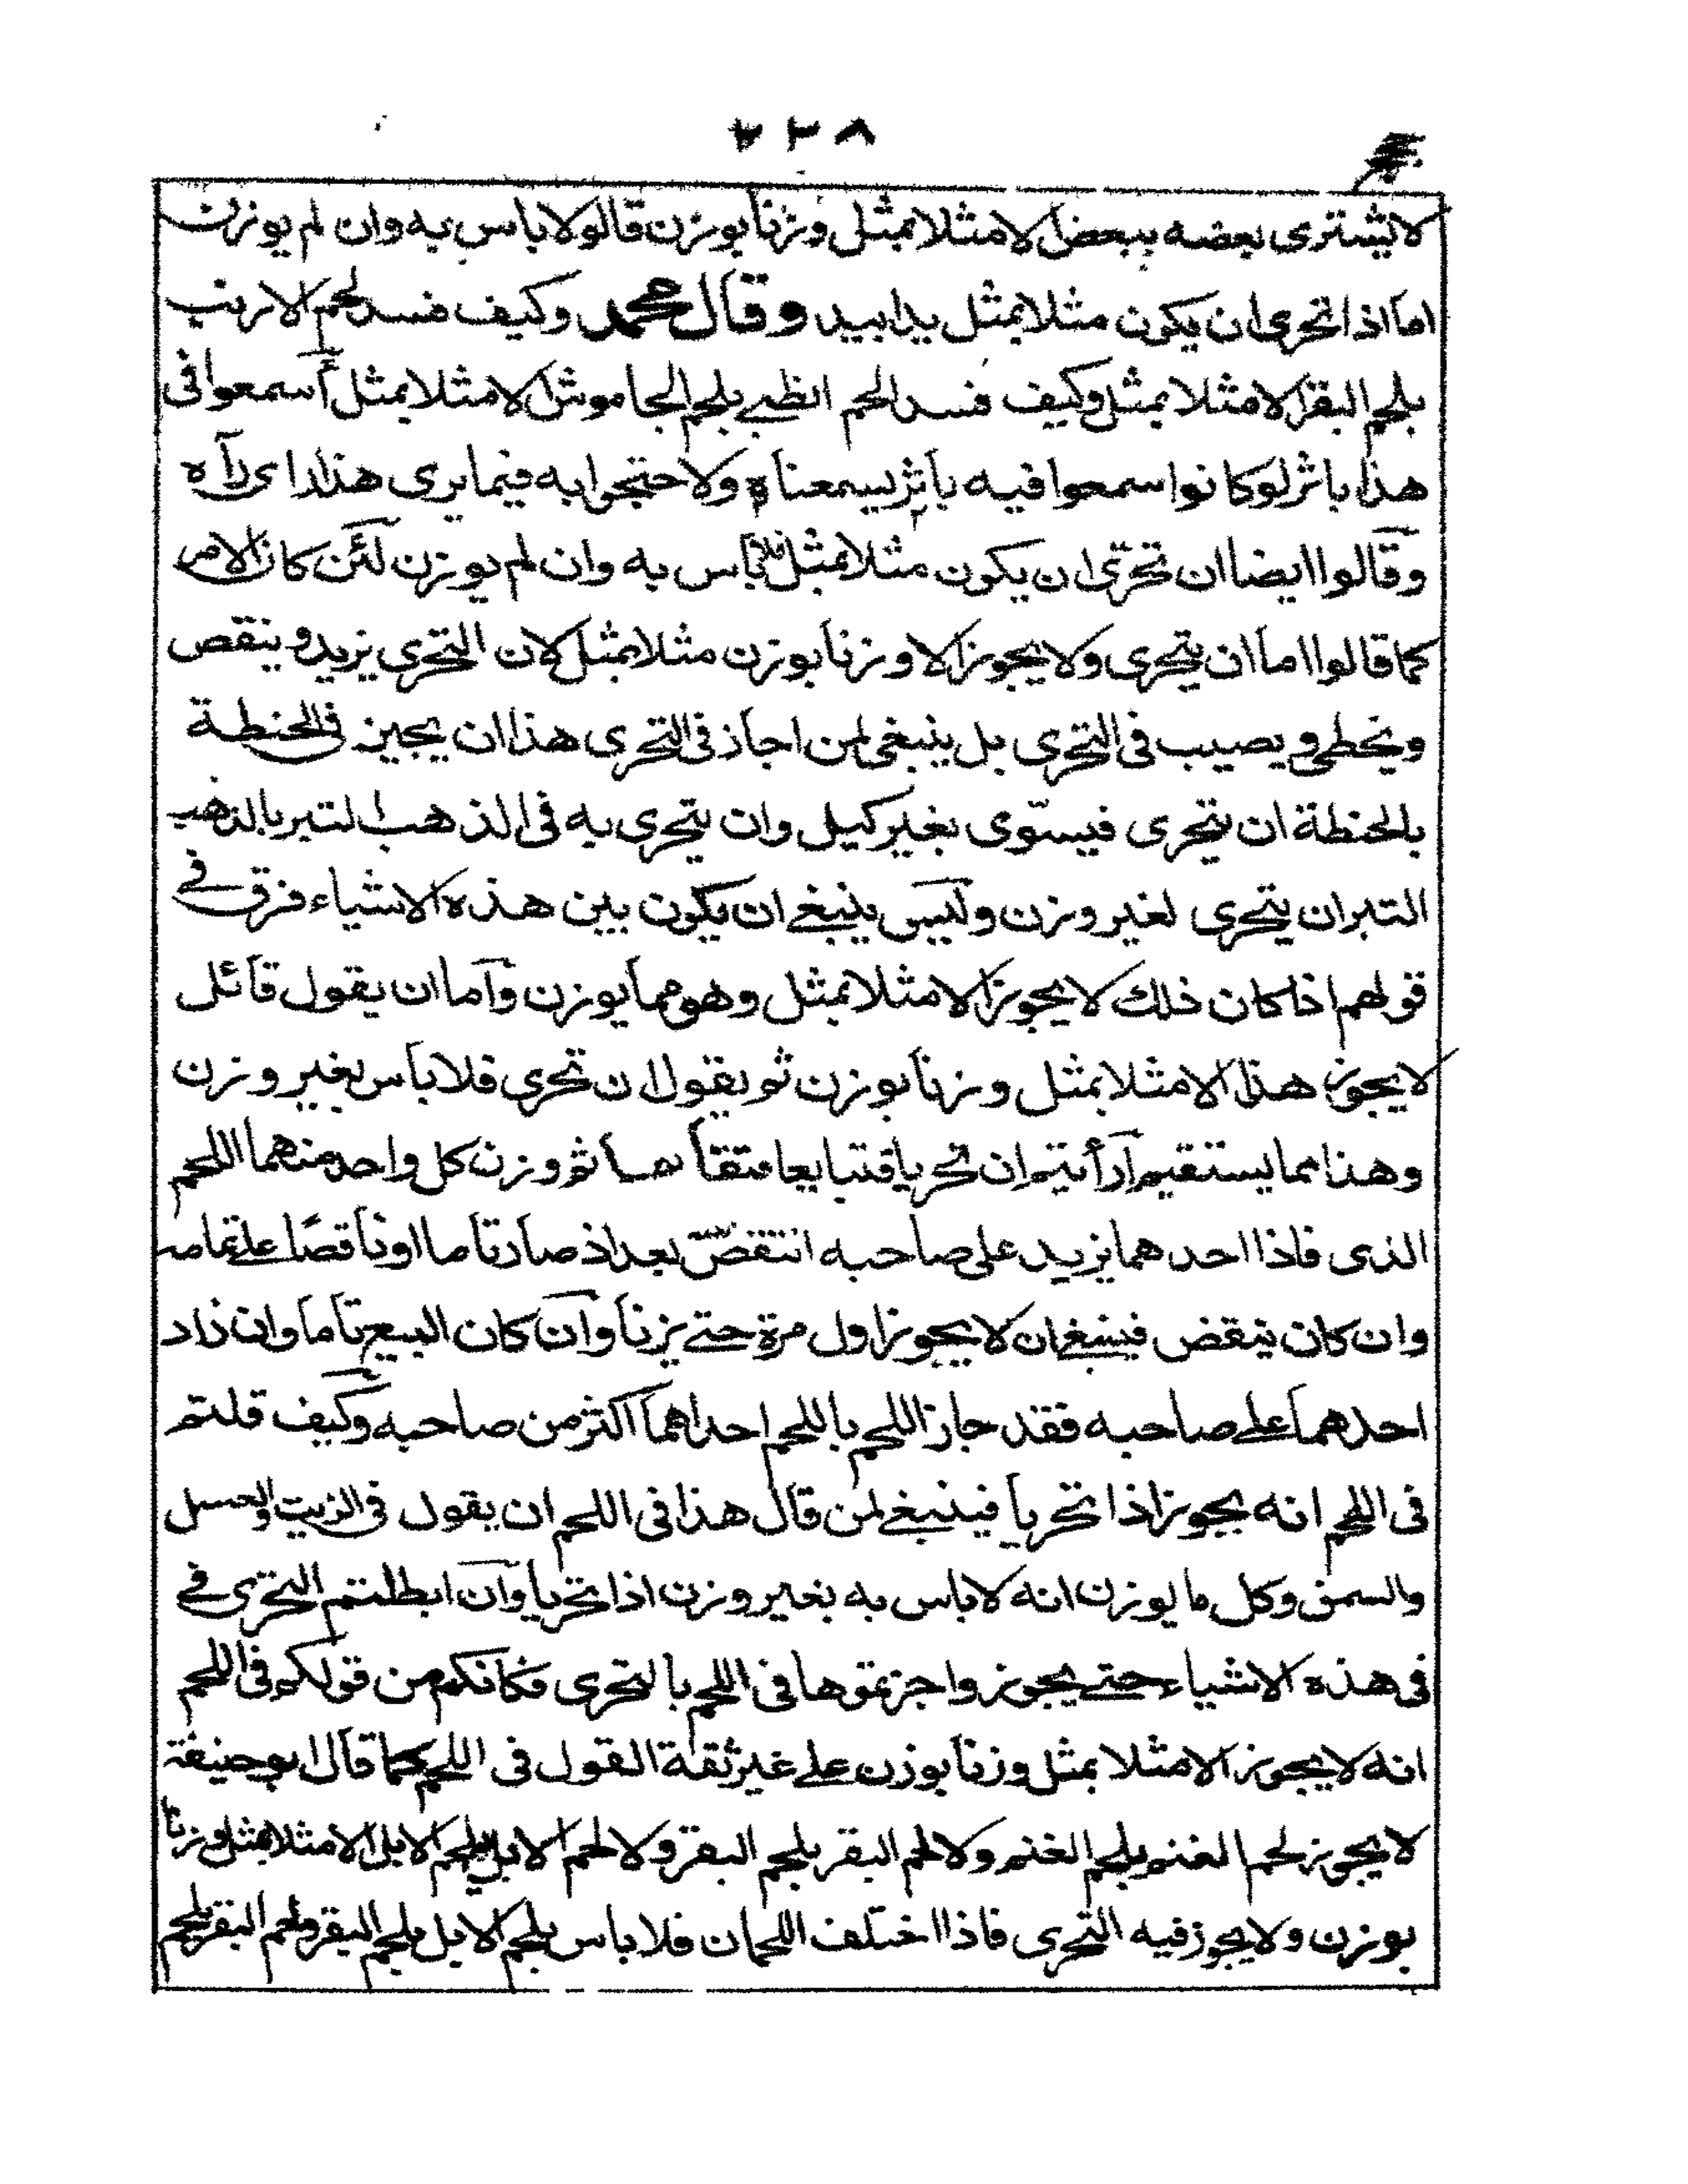 ٢٣٨
لا يشترى بعضه ببعض الا مثلا بمثل وزنا بوزن قالوا لا باس به وان لم يوزن
اما اذا تحرى ان يكون مثلا بمثل يدا بيد وقال محمد وكيف فسد لحم الارنب
بلحم البقر الا مثلا بمثل وكيف فسد لحم الظبي بلحم الجاموش الا مثلا بمثل أسمعوا فى
هذا باثر لو كانوا سمعوا فيه باثر لسمعناه ولاحتجوا به فيما يرى هذا راى رآه
وقالوا ايضا ان تحرى ان يكون مثلا بمثل فلا باس به وان لم يوزن لئن كان الامر
كما قالوا اما ان يتحرى ولا يجوز الا وزنا بوزن مثلا بمثل لان التحرى يزيد وينقص
ويخطى ويصيب فى التحرى بل ينبغى لمن اجاز فى التحرى هذا ان يجيز فى الحنطة
بالحنطة ان يتحرى فيسوّى بغير كيل وان يتحرى به فى الذهب التبر بالذهب
التبر ان يتحرى لغير وزن وليس ينبغى ان يكون بين هذه الاشياء فرق فى
قولهم اذا كان ذلك لا يجوز الا مثلا بمثل وهو مما يوزن واما ان يقول قائل
لا يجوز هذا الا مثلا بمثل وزنا بوزن ثم يقول ان تحرى فلا باس بغير وزن
وهذا مما يستقيم أرأيتم ان تحريا فتبايعا متقا بضا ثم وزن كل واحد منهما اللحم
الذى فاذا احدهما يزيد على صاحبه انتقض بعد اذ صار تاما او ناقصًا على تمامه
وان كان ينقض فينبغى ان لا يجوز اول مرة حتى يزنا وان كان البيع تاما وان زاد
احدهما على صاحبه فقد جاز اللحم باللحم احداهما اكثر من صاحبه وكيف قلتم
فى اللحم انه يجوز اذا تحريا فينبغى لمن قال هذا فى اللحم ان يقول فى الزيت والعسل
والسمن وكل ما يوزن انه لا باس به بغير وزن اذا تحريا وان ابطلتم التحرى فى
فى هذه الاشياء حتى يجوز واجزتموها فى اللحم بالتحرى فكانكم من قولكم فى اللحم
انه لا يجوز الا مثلا بمثل وزنا بوزن على غير ثقة القول فى اللحم كما قال ابو حنيفة
لا يجوز لحم الغنم بلحم الغنم ولا لحم البقر بلحم البقر ولا لحم الابل بلحم الابل الا مثلا بمثل وزنا
بوزن ولا يجوز فيه التحرى فاذا اختلف اللحمان فلا باس بلحم الابل بلحم البقر ولحم البقر بلحم